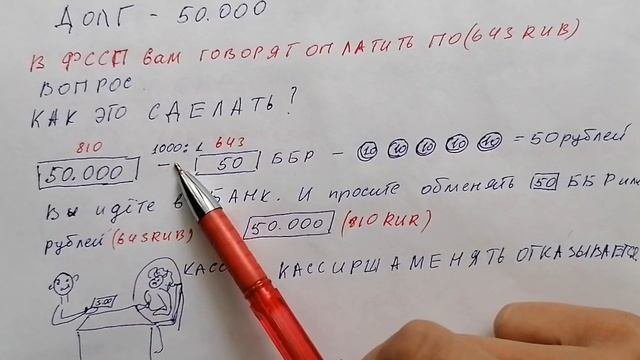 ДОЛГ - 50.000
В ФССП ВАМ ГОВОРЯТ ОПЛАТИТЬ ПО (643 RUB)
ВОПРОС.
КАК ЭТО СДЕЛАТЬ?
810 1000:1 643
50.000 - 50 ББР - 10 10 10 10 10 = 50 рублей
Вы идёте в БАНК. И просите обменять 50 ББР
рублей (643 RUB) 50.000 (810 RUR)
КАССИРША МЕНЯТЬ ОТКАЗЫВАЕТСЯ